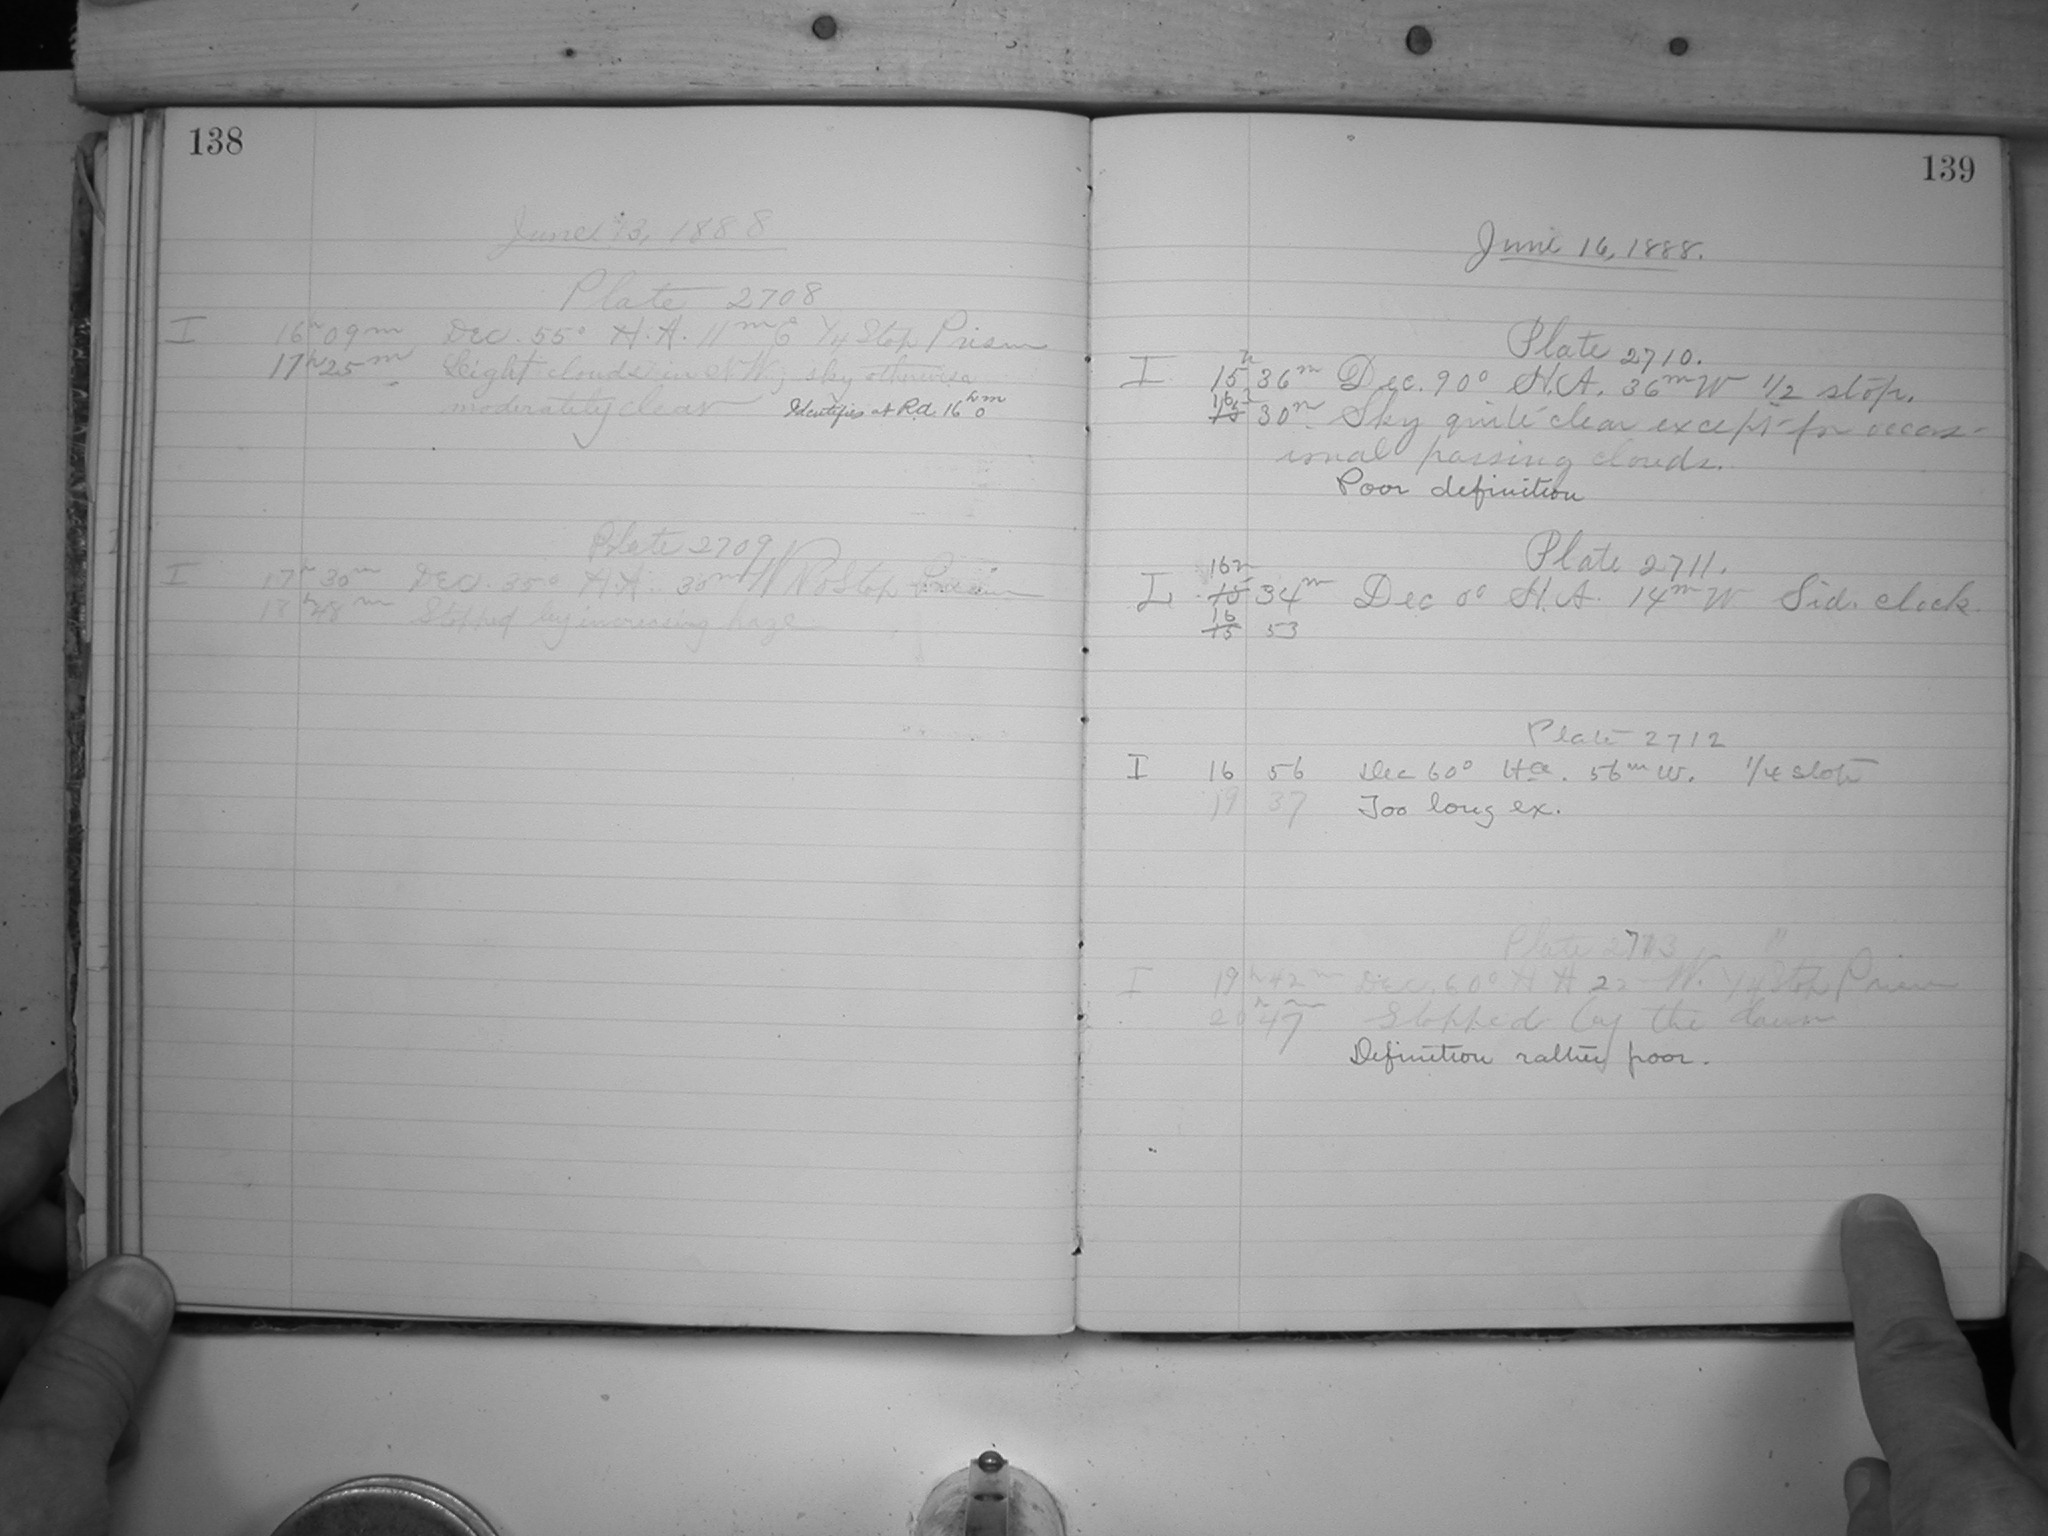 138
June 13, 1888
Plate 2708
I 16h 09m Dec. 55° H.A. 11m E 1/4 Stop Prism
17h 25m Slight clouds in NW; sky otherwise
moderately clear Identifies at R.A. 16h 0m
Plate 2709
I 17h 30m Dec. 35° H.A. 30m W No Stop Prism
18h 48m Stopped by increasing haze
139
June 16, 1888.
Plate 2710.
I 15h 36m Dec. 90° H.A. 36m W 1/2 stop.
16h 15 30m. Sky quite clear except for occas-
ional passing clouds.
Poor definition
Plate 2711.
16h
I 15 34m Dec 0° H.A. 14m W Sid. clock.
16
15 53
Plate 2712
I 16 56 Dec 60° Ha. 56m W. 1/4 stop
19 37 Too long ex.
Plate 2713
I 19h 42m Dec. 60° H A 22 W. 1/4 Stop Prism
20h 47m Stopped by the dawn
Definition rather poor.